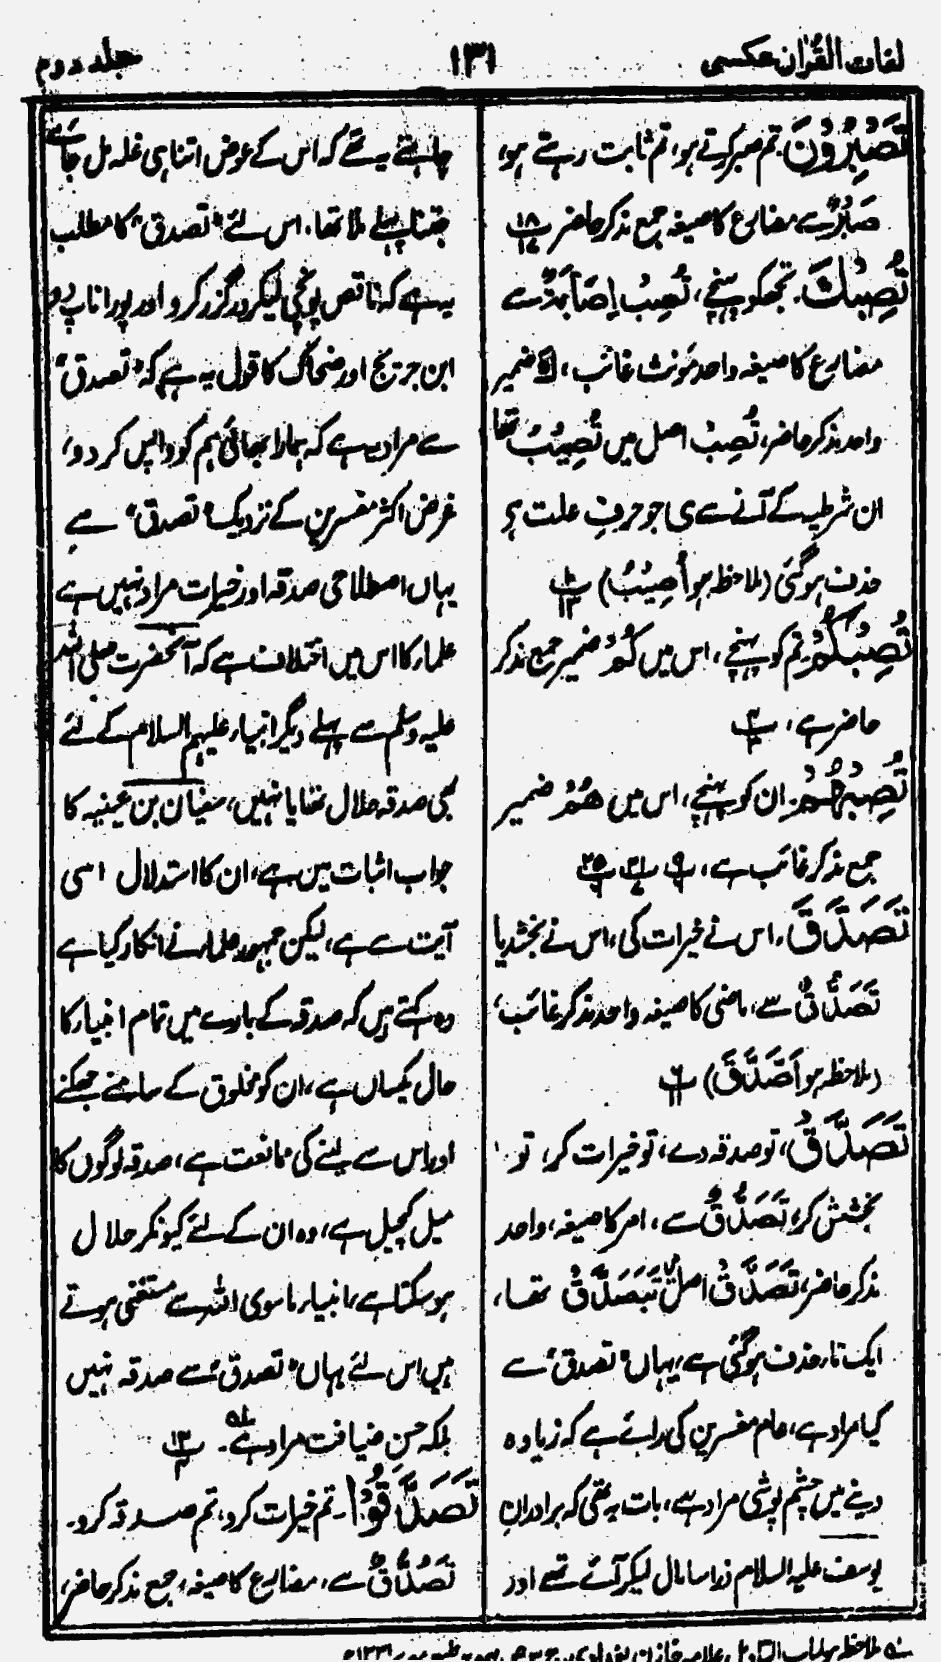 لغات القُرآن عکسی
۱۳۱
جلد دوم
تَصْبِرُوْنَ تم صبر کرتے ہو، تم ثابت رہتے ہو،
صَبْرٌ سے مضارع کا صیغہ جمع مذکر حاضر پ ۱۸ ۱۷
تُصِبْكَ۔ تجھ کو پہنچے، تُصِبْ اِصَابَةٌ سے
مضارع کا صیغہ واحد مؤنث غائب، كَ ضمیر
واحد مذکر حاضر، تُصِبْ اصل میں تُصِیْبُ تھا
ان شرطیہ کے آنے سے ی جو حرفِ علت ہے
حذف ہو گئی (ملاحظہ ہو اُصِیْبُ) پ ۱۰ ۱۳
تُصِبْكُمْ تم کو پہنچے، اس میں كُمْ ضمیر جمع مذکر
حاضر ہے، پ ۴
تُصِبْهُمْ۔ ان کو پہنچے، اس میں هُمْ ضمیر
جمع مذکر غائب ہے،
تَصَدَّقَ، اس نے خیرات کی، اس نے بخشدیا
تَصَدُّقٌ سے، ماضی کا صیغہ واحد مذکر غائب،
(ملاحظہ ہو اَصَّدَّقَ) پ ۶ ۱۱
تَصَدَّقْ، تو صدقہ دے، تو خیرات کر، تو
بخشش کر، تَصَدُّقٌ سے، امر کا صیغہ، واحد
مذکر حاضر، تَصَدَّقْ اصل تَتَصَدَّقْ تھا،
ایک تار حذف ہو گئی ہے، یہاں "تصدق" سے
کیا مراد ہے، عام مفسرین کی رائے ہے کہ زیادہ
دینے میں چشم پوشی مراد ہے، بات یہ تھی کہ برادرانِ
یوسف علیہ السلام ذرا سا مال لیکر آئے تھے اور
چاہتے یہ تھے کہ اس کے عوض اتنا ہی غلہ مل جائے
جتنا پہلے ملا تھا، اس لئے "تصدق" کا مطلب
یہ ہے کہ ناقص پونجی لیکر درگزر کرو اور پورا ناپ دو
ابن جریج اور ضحاک کا قول یہ ہے کہ "تصدق"
سے مراد یہ ہے کہ ہمارا بھائی ہم کو واپس کر دو،
غرض اکثر مفسرین کے نزدیک "تصدق" سے
یہاں اصطلاحی صدقہ اور خیرات مراد نہیں ہے
علمار کا اس میں اختلاف ہے کہ آنحضرت صلی اللہ
علیہ وسلم سے پہلے دیگر انبیاء علیہم السلام کے لئے
بھی صدقہ حلال تھا یا نہیں، سفیان بن عیینہ کا
جواب اثبات میں ہے، ان کا استدلال اسی
آیت سے ہے، لیکن جمہور علمار نے انکار کیا ہے
وہ کہتے ہیں کہ صدقہ کے بارے میں تمام انبیار کا
حال یکساں ہے، ان کو مخلوق کے سامنے جھکنے
اور اس سے لینے کی ممانعت ہے، صدقہ لوگوں کا
میل کچیل ہے، وہ ان کے لئے کیونکر حلال
ہو سکتا ہے، انبیار ماسوی اللہ سے مستغنی ہوتے
ہیں اس لئے یہاں "تصدّق" سے صدقہ نہیں
بلکہ حسنِ ضیافت مراد ہے۔ پ ۱۳
تَصَدَّقُوْا۔ تم خیرات کرو، تم صدقہ کرو۔
تَصَدُّقٌ سے، مضارع کا صیغہ، جمع مذکر حاضر،